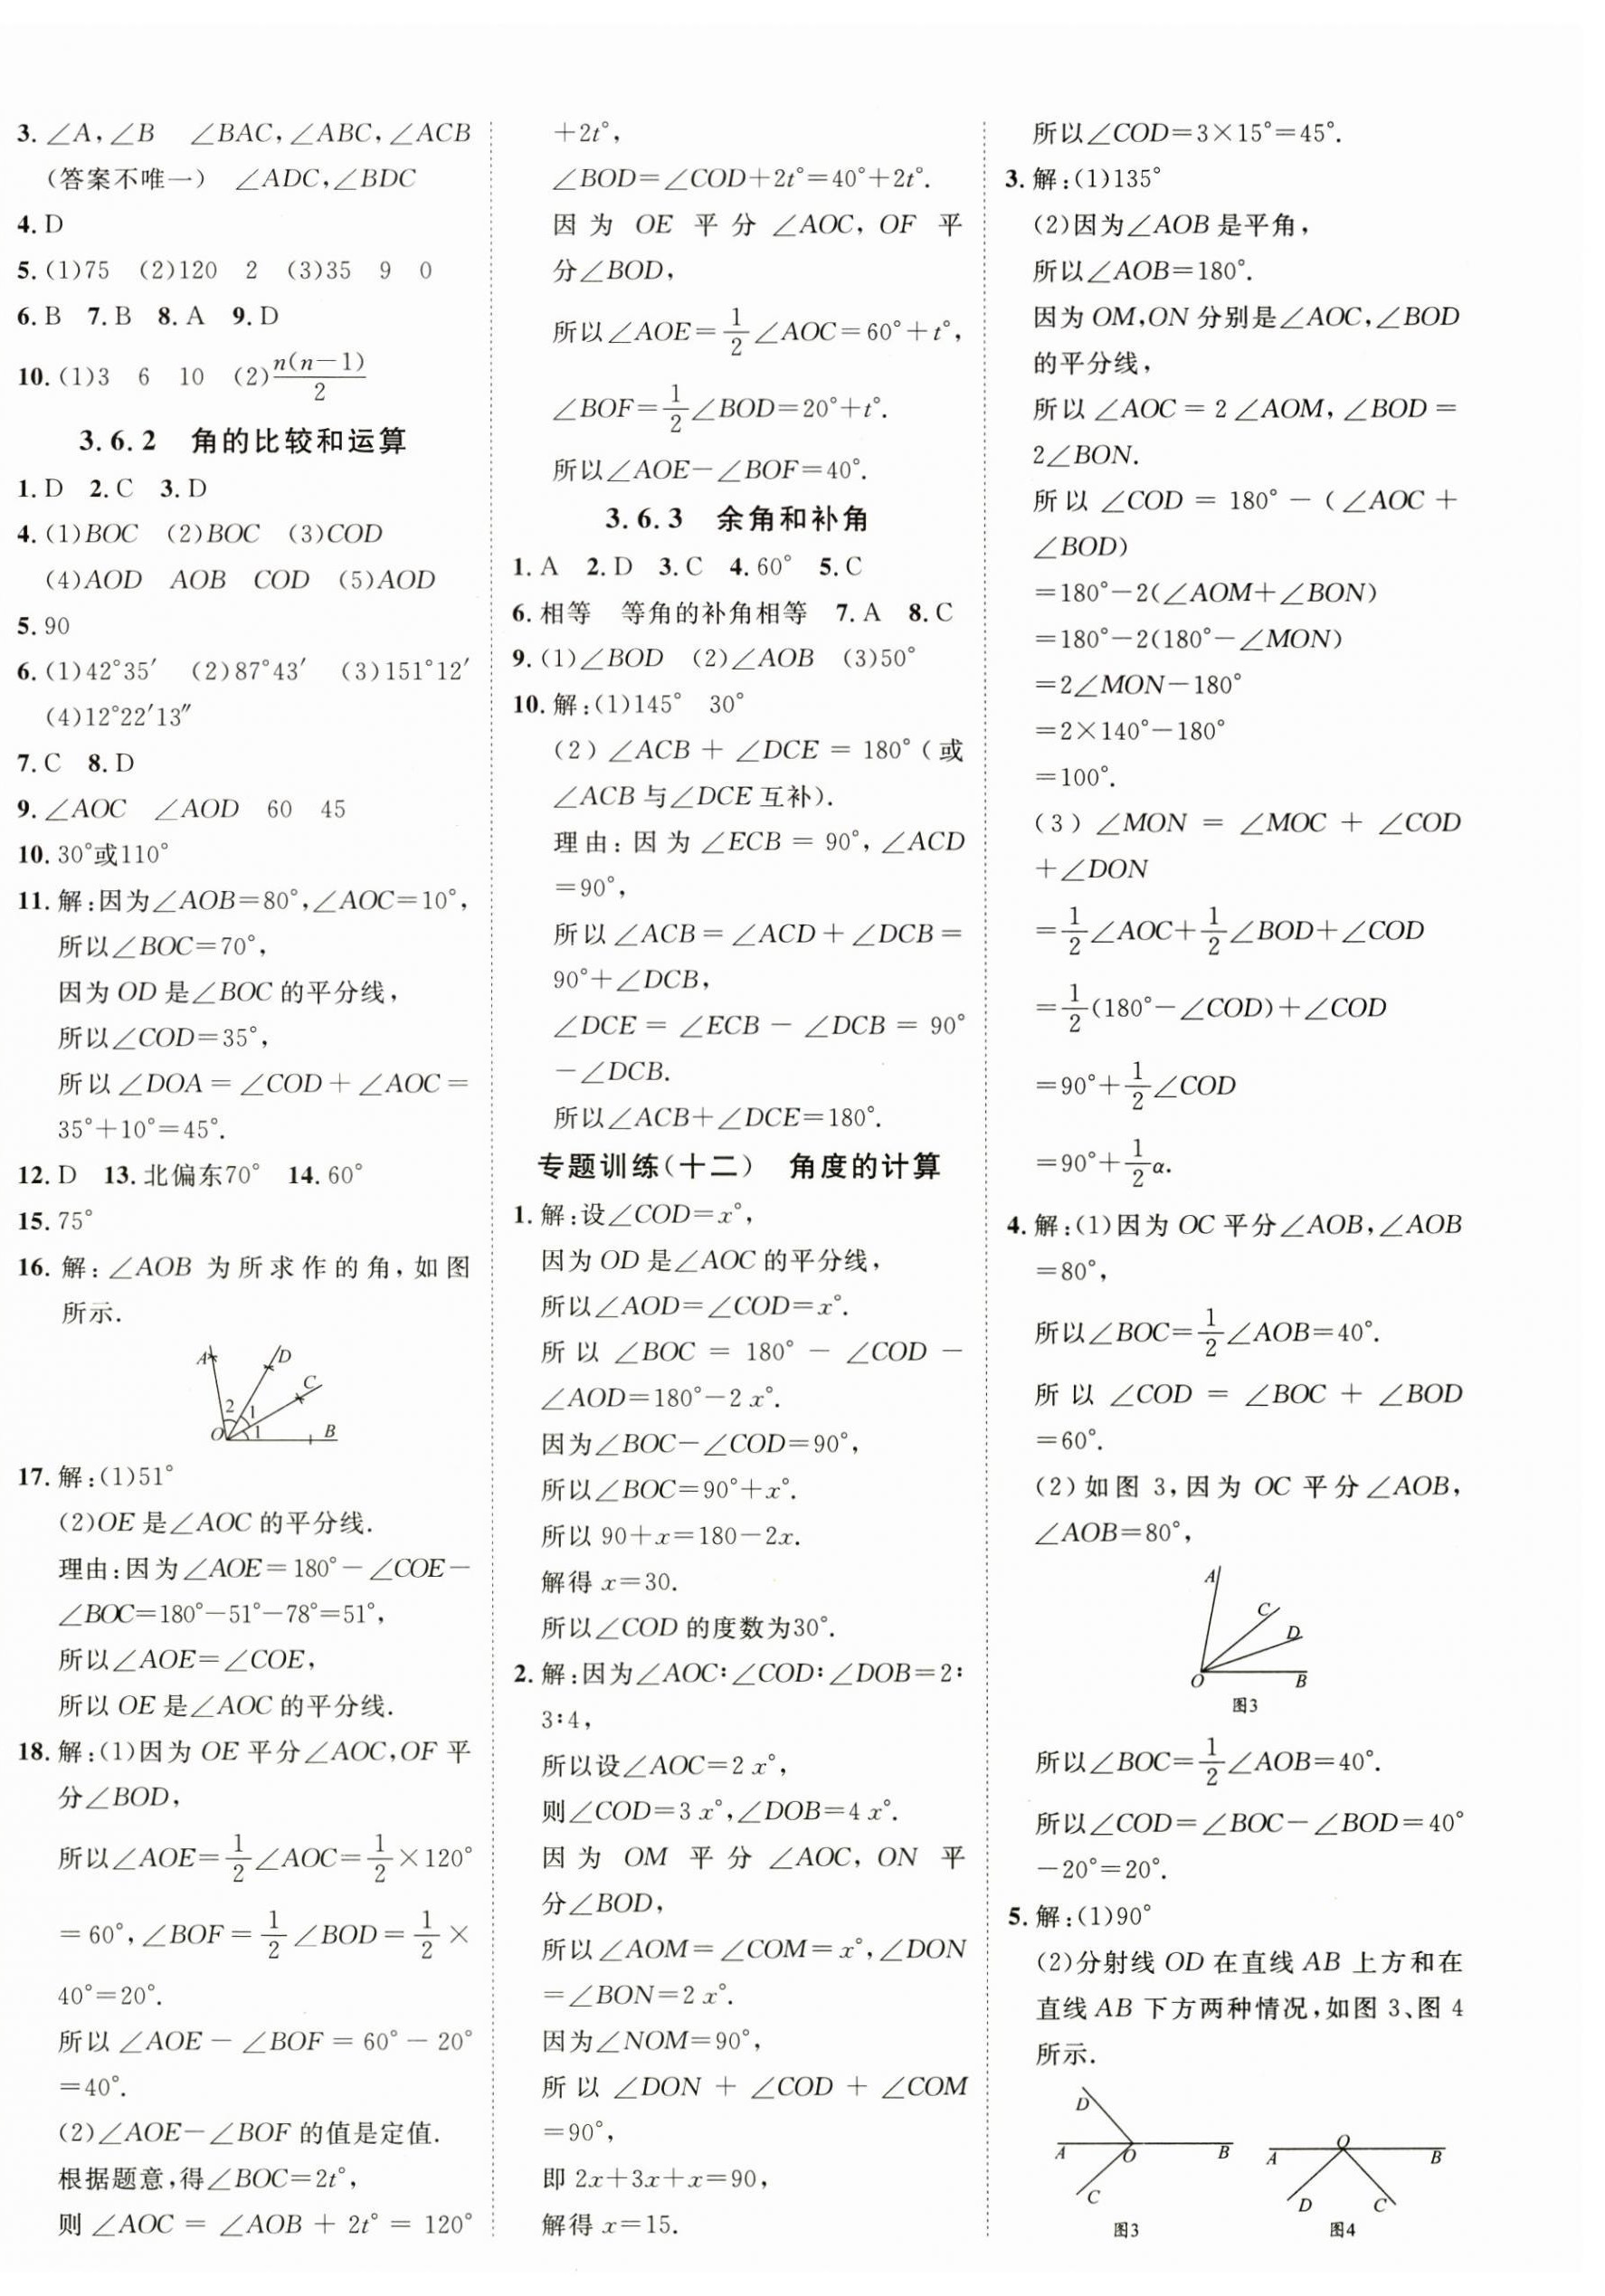 3. ∠A,∠B ∠BAC,∠ABC,∠ACB
(答案不唯一) ∠ADC,∠BDC
4. D
5. (1)75 (2)120 2 (3)35 9 0
6. B 7. B 8. A 9. D
10. (1)3 6 10 (2)n(n-1)/2
3.6.2 角的比较和运算
1. D 2. C 3. D
4. (1)BOC (2)BOC (3)COD
(4)AOD AOB COD (5)AOD
5. 90
6. (1)42°35′ (2)87°43′ (3)151°12′
(4)12°22′13″
7. C 8. D
9. ∠AOC ∠AOD 60 45
10. 30°或110°
11. 解:因为∠AOB=80°,∠AOC=10°,
所以∠BOC=70°,
因为 OD 是∠BOC 的平分线,
所以∠COD=35°,
所以∠DOA=∠COD+∠AOC=
35°+10°=45°.
12. D 13. 北偏东70° 14. 60°
15. 75°
16. 解:∠AOB 为所求作的角,如图
所示.
A D C 2 1 1 O B
17. 解:(1)51°
(2)OE 是∠AOC 的平分线.
理由:因为∠AOE=180°-∠COE-
∠BOC=180°-51°-78°=51°,
所以∠AOE=∠COE,
所以 OE 是∠AOC 的平分线.
18. 解:(1)因为 OE 平分∠AOC,OF 平
分∠BOD,
所以∠AOE=1/2∠AOC=1/2×120°
=60°,∠BOF=1/2∠BOD=1/2×
40°=20°.
所以∠AOE-∠BOF=60°-20°
=40°.
(2)∠AOE-∠BOF 的值是定值.
根据题意,得∠BOC=2t°,
则∠AOC=∠AOB+2t°=120°
+2t°,
∠BOD=∠COD+2t°=40°+2t°.
因为 OE 平分∠AOC, OF 平
分∠BOD,
所以∠AOE=1/2∠AOC=60°+t°,
∠BOF=1/2∠BOD=20°+t°.
所以∠AOE-∠BOF=40°.
3.6.3 余角和补角
1. A 2. D 3. C 4. 60° 5. C
6. 相等 等角的补角相等 7. A 8. C
9. (1)∠BOD (2)∠AOB (3)50°
10. 解:(1)145° 30°
(2)∠ACB+∠DCE=180°(或
∠ACB 与∠DCE 互补).
理由:因为∠ECB=90°,∠ACD
=90°,
所以∠ACB=∠ACD+∠DCB=
90°+∠DCB,
∠DCE=∠ECB-∠DCB=90°
-∠DCB.
所以∠ACB+∠DCE=180°.
专题训练(十二) 角度的计算
1. 解:设∠COD=x°,
因为 OD 是∠AOC 的平分线,
所以∠AOD=∠COD=x°.
所以∠BOC=180°-∠COD-
∠AOD=180°-2 x°.
因为∠BOC-∠COD=90°,
所以∠BOC=90°+x°.
所以 90+x=180-2x.
解得 x=30.
所以∠COD 的度数为30°.
2. 解:因为∠AOC:∠COD:∠DOB=2:
3:4,
所以设∠AOC=2 x°,
则∠COD=3 x°,∠DOB=4 x°.
因为 OM 平分∠AOC, ON 平
分∠BOD,
所以∠AOM=∠COM=x°,∠DON
=∠BON=2 x°.
因为∠NOM=90°,
所以∠DON+∠COD+∠COM
=90°,
即 2x+3x+x=90,
解得 x=15.
所以∠COD=3×15°=45°.
3. 解:(1)135°
(2)因为∠AOB 是平角,
所以∠AOB=180°.
因为 OM,ON 分别是∠AOC,∠BOD
的平分线,
所以∠AOC=2∠AOM,∠BOD=
2∠BON.
所以∠COD=180°-(∠AOC+
∠BOD)
=180°-2(∠AOM+∠BON)
=180°-2(180°-∠MON)
=2∠MON-180°
=2×140°-180°
=100°.
(3)∠MON=∠MOC+∠COD
+∠DON
=1/2∠AOC+1/2∠BOD+∠COD
=1/2(180°-∠COD)+∠COD
=90°+1/2∠COD
=90°+1/2α.
4. 解:(1)因为 OC 平分∠AOB,∠AOB
=80°,
所以∠BOC=1/2∠AOB=40°.
所以∠COD=∠BOC+∠BOD
=60°.
(2)如图 3,因为 OC 平分∠AOB,
∠AOB=80°,
A C D O B
图3
所以∠BOC=1/2∠AOB=40°.
所以∠COD=∠BOC-∠BOD=40°
-20°=20°.
5. 解:(1)90°
(2)分射线 OD 在直线 AB 上方和在
直线 AB 下方两种情况,如图 3、图 4
所示.
D A O B C
图3
O A B D C
图4